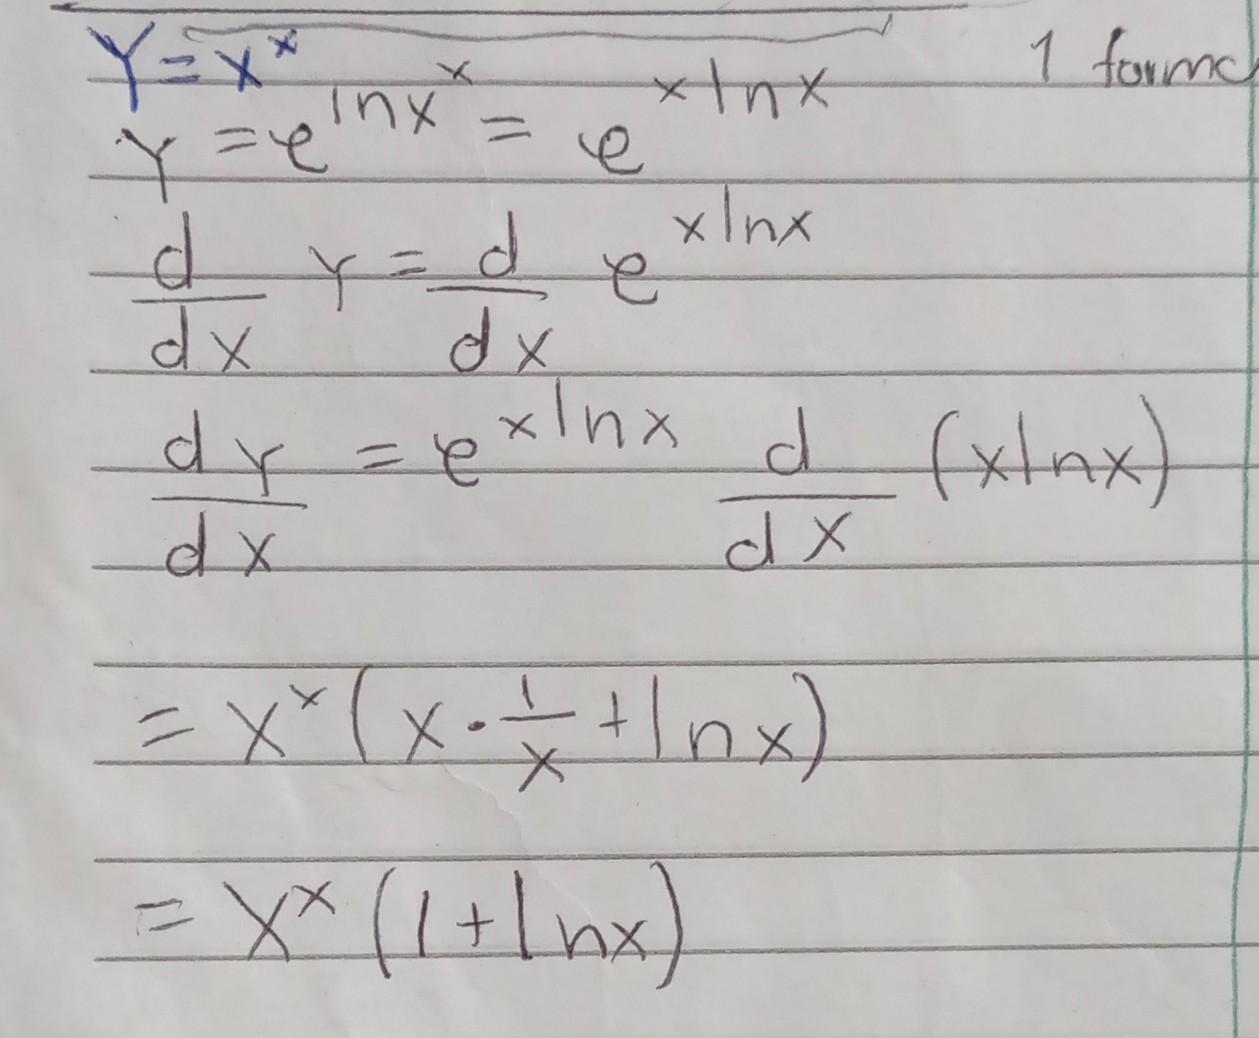 Y = x^x 1 forma
Y = e^{lnx^x} = e^{xlnx}
d/dx Y = d/dx e^{xlnx}
dY/dx = e^{xlnx} d/dx (xlnx)
= x^x (x · 1/x + lnx)
= x^x (1 + lnx)